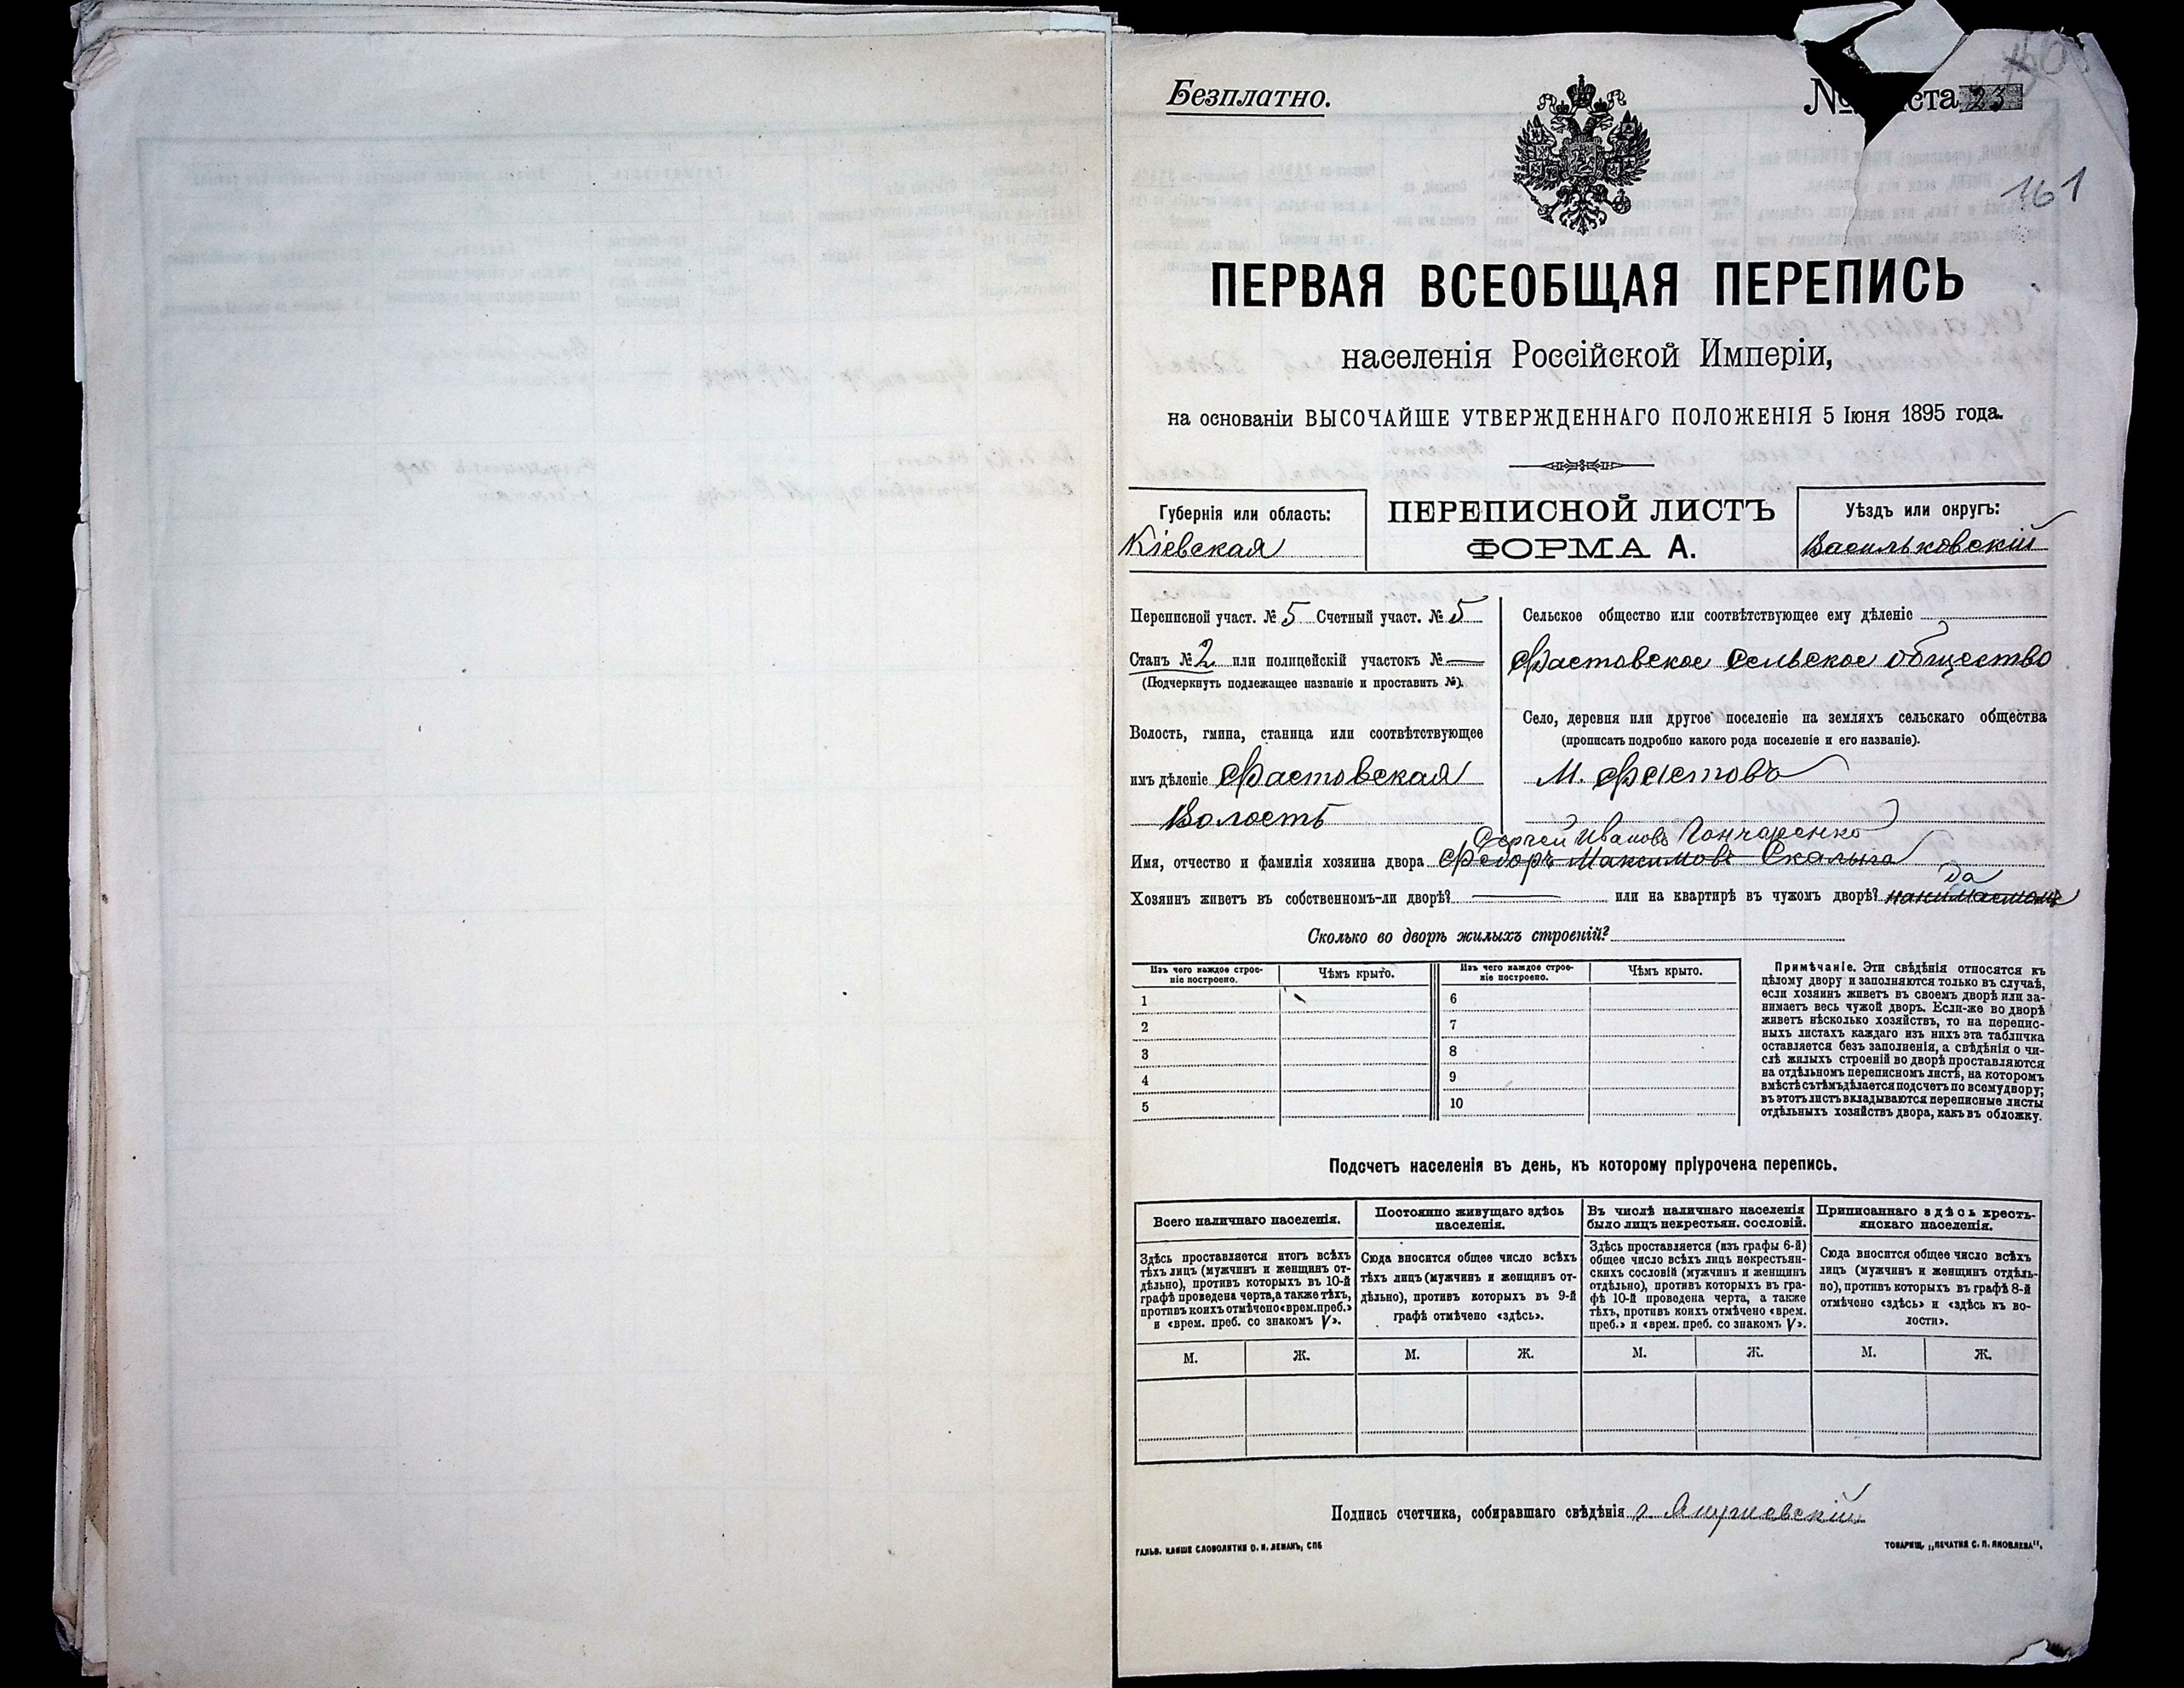 Безплатно.
№ ста 23
161
ПЕРВАЯ ВСЕОБЩАЯ ПЕРЕПИСЬ
населенія Россійской Имперіи,
на основаніи ВЫСОЧАЙШЕ УТВЕРЖДЕННАГО ПОЛОЖЕНІЯ 5 Іюня 1895 года.
Губернія или область:
Кіевская
ПЕРЕПИСНОЙ ЛИСТЪ
ФОРМА А.
Уѣздъ или округъ:
Васильковскій
Переписной участ. № 5 Счетный участ. № 5
Станъ № 2 или полицейскій участокъ № —
(Подчеркнуть подлежащее названіе и проставить №).
Волость, гмина, станица или соотвѣтствующее
имъ дѣленіе Фастовская
Волость
Сельское общество или соотвѣтствующее ему дѣленіе
Фастовское Сельское общество
Село, деревня или другое поселеніе на земляхъ сельскаго общества
(прописать подробно какого рода поселеніе и его названіе).
М. Фастовъ
Сергей Ивановъ Гончаренко
Имя, отчество и фамилія хозяина двора Федоръ Максимовъ Скалыга
да
Хозяинъ живетъ въ собственномъ-ли дворѣ? — или на квартирѣ въ чужомъ дворѣ?
Сколько во дворѣ жилыхъ строеній?
Изъ чего каждое строе-
ніе построено.
Чѣмъ крыто.
Изъ чего каждое строе-
ніе построено.
Чѣмъ крыто.
1 6
2 7
3 8
4 9
5 10
Примѣчаніе. Эти свѣдѣнія относятся къ
цѣлому двору и заполняются только въ случаѣ,
если хозяинъ живетъ въ своемъ дворѣ или за-
нимаетъ весь чужой дворъ. Если-же во дворѣ
живетъ нѣсколько хозяйствъ, то на перепис-
ныхъ листахъ каждаго изъ нихъ эта табличка
оставляется безъ заполненія, а свѣдѣнія о чи-
слѣ жилыхъ строеній во дворѣ проставляются
на отдѣльномъ переписномъ листѣ, на которомъ
вмѣстѣ съ тѣмъ дѣлается подсчетъ по всему двору;
въ этотъ листъ вкладываются переписные листы
отдѣльныхъ хозяйствъ двора, какъ въ обложку.
Подсчетъ населенія въ день, къ которому пріурочена перепись.
Всего наличнаго населенія.
Здѣсь проставляется итогъ всѣхъ
тѣхъ лицъ (мужчинъ и женщинъ от-
дѣльно), противъ которыхъ въ 10-й
графѣ проведена черта, а также тѣхъ,
противъ коихъ отмѣчено «врем. преб.»
и «врем. преб. со знакомъ V».
Постоянно живущаго здѣсь
населенія.
Сюда вносится общее число всѣхъ
тѣхъ лицъ (мужчинъ и женщинъ от-
дѣльно), противъ которыхъ въ 9-й
графѣ отмѣчено «здѣсь».
Въ числѣ наличнаго населенія
было лицъ некрестьян. сословій.
Здѣсь проставляется (изъ графы 6-й)
общее число всѣхъ лицъ некрестьян-
скихъ сословій (мужчинъ и женщинъ
отдѣльно), противъ которыхъ въ гра-
фѣ 10-й проведена черта, а также
тѣхъ, противъ коихъ отмѣчено «врем.
преб.» и «врем. преб. со знакомъ V».
Приписаннаго здѣсь кресть-
янскаго населенія.
Сюда вносится общее число всѣхъ
лицъ (мужчинъ и женщинъ отдѣль-
но), противъ которыхъ въ графѣ 8-й
отмѣчено «здѣсь» и «здѣсь къ во-
лости».
М. Ж. М. Ж. М. Ж. М. Ж.
Подпись счетчика, собиравшаго свѣдѣнія
ГАЛЬВ. КЛИШЕ СЛОВОЛИТНИ О. И. ЛЕМАНЪ, СПБ
ТОВАРИЩ. „ПЕЧАТНЯ С. П. ЯКОВЛЕВА".